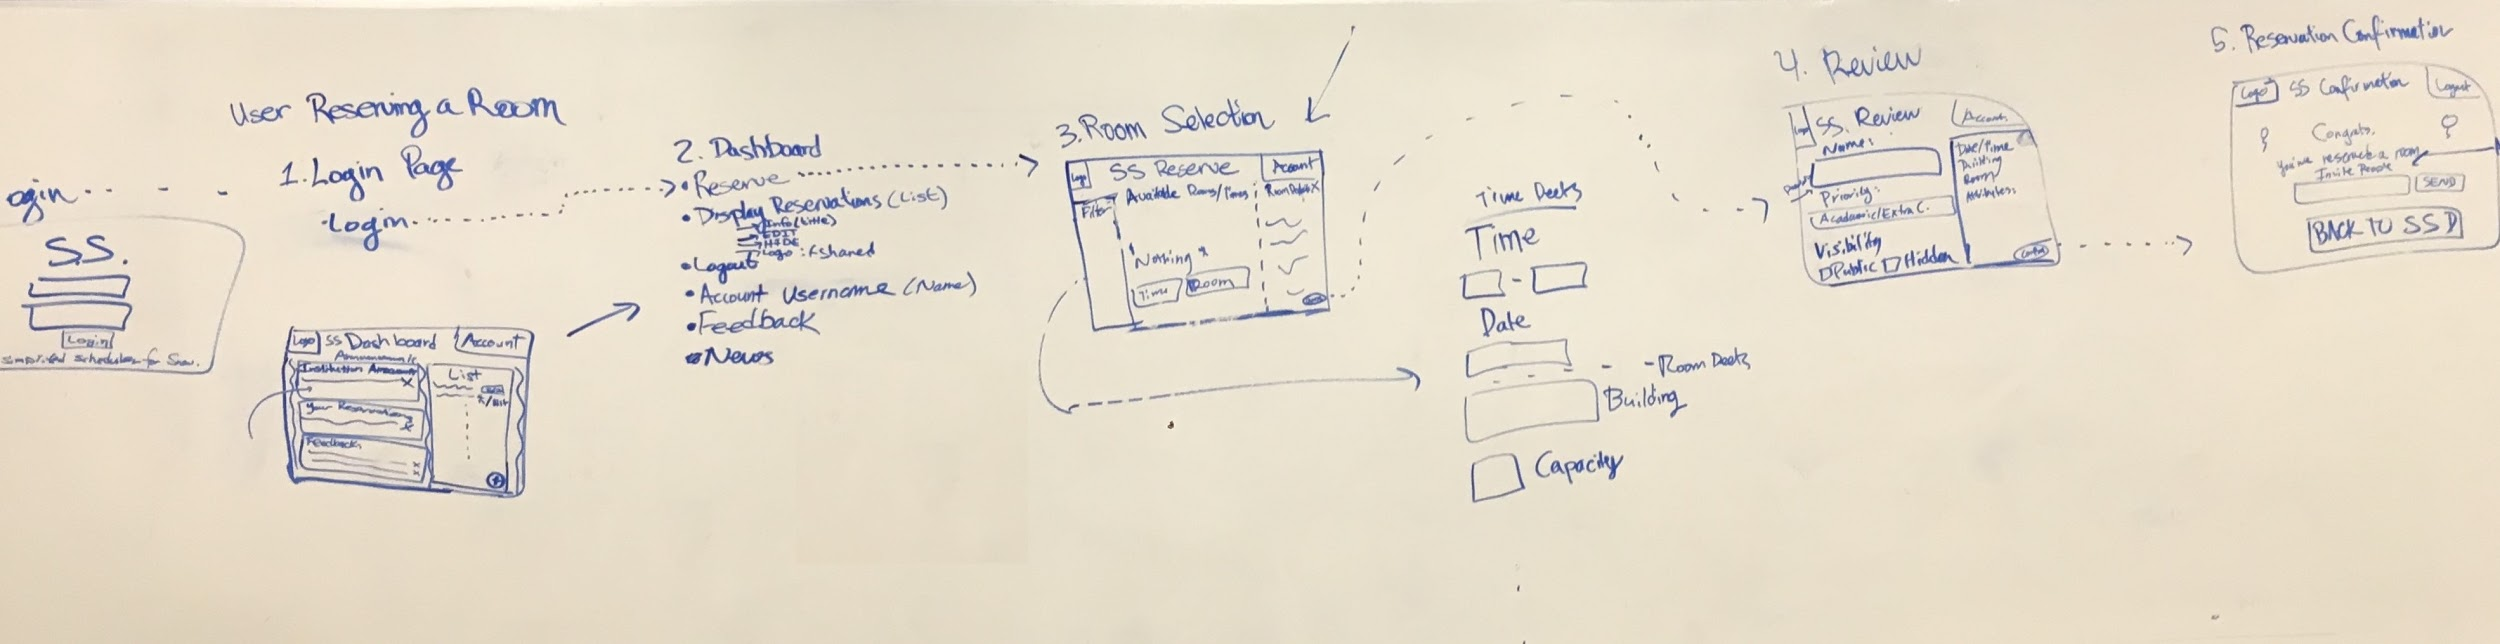 User Reserving a Room
1. Login Page
• Login
ogin
S.S.
Login
for
Logo
SS Dashboard
Account
Institution
Your Reservations
Feedback
List
2. Dashboard
• Reserve
• Display Reservations (List)
Info (Little)
EDIT
HIDE
Logo: if shared
• Logout
• Account Username (Name)
• Feedback
• News
3. Room Selection
Logo
SS Reserve
Account
Filter
Available Rooms/Times
Room X
"Nothing"
Time
Room
Time Deets
Time
-
Date
- Room Deets
Building
Capacity
4. Review
Logo
SS. Review
Account
Name:
Priority:
Academic/Extra C.
Visibility
Public
Hidden
Date/Time
Building
Room
Attributes:
Confirm
5. Reservation Confirmation
Logo
SS Confirmation
Logout
Congrats.
You've reserved a room
Invite People
SEND
BACK TO SSD